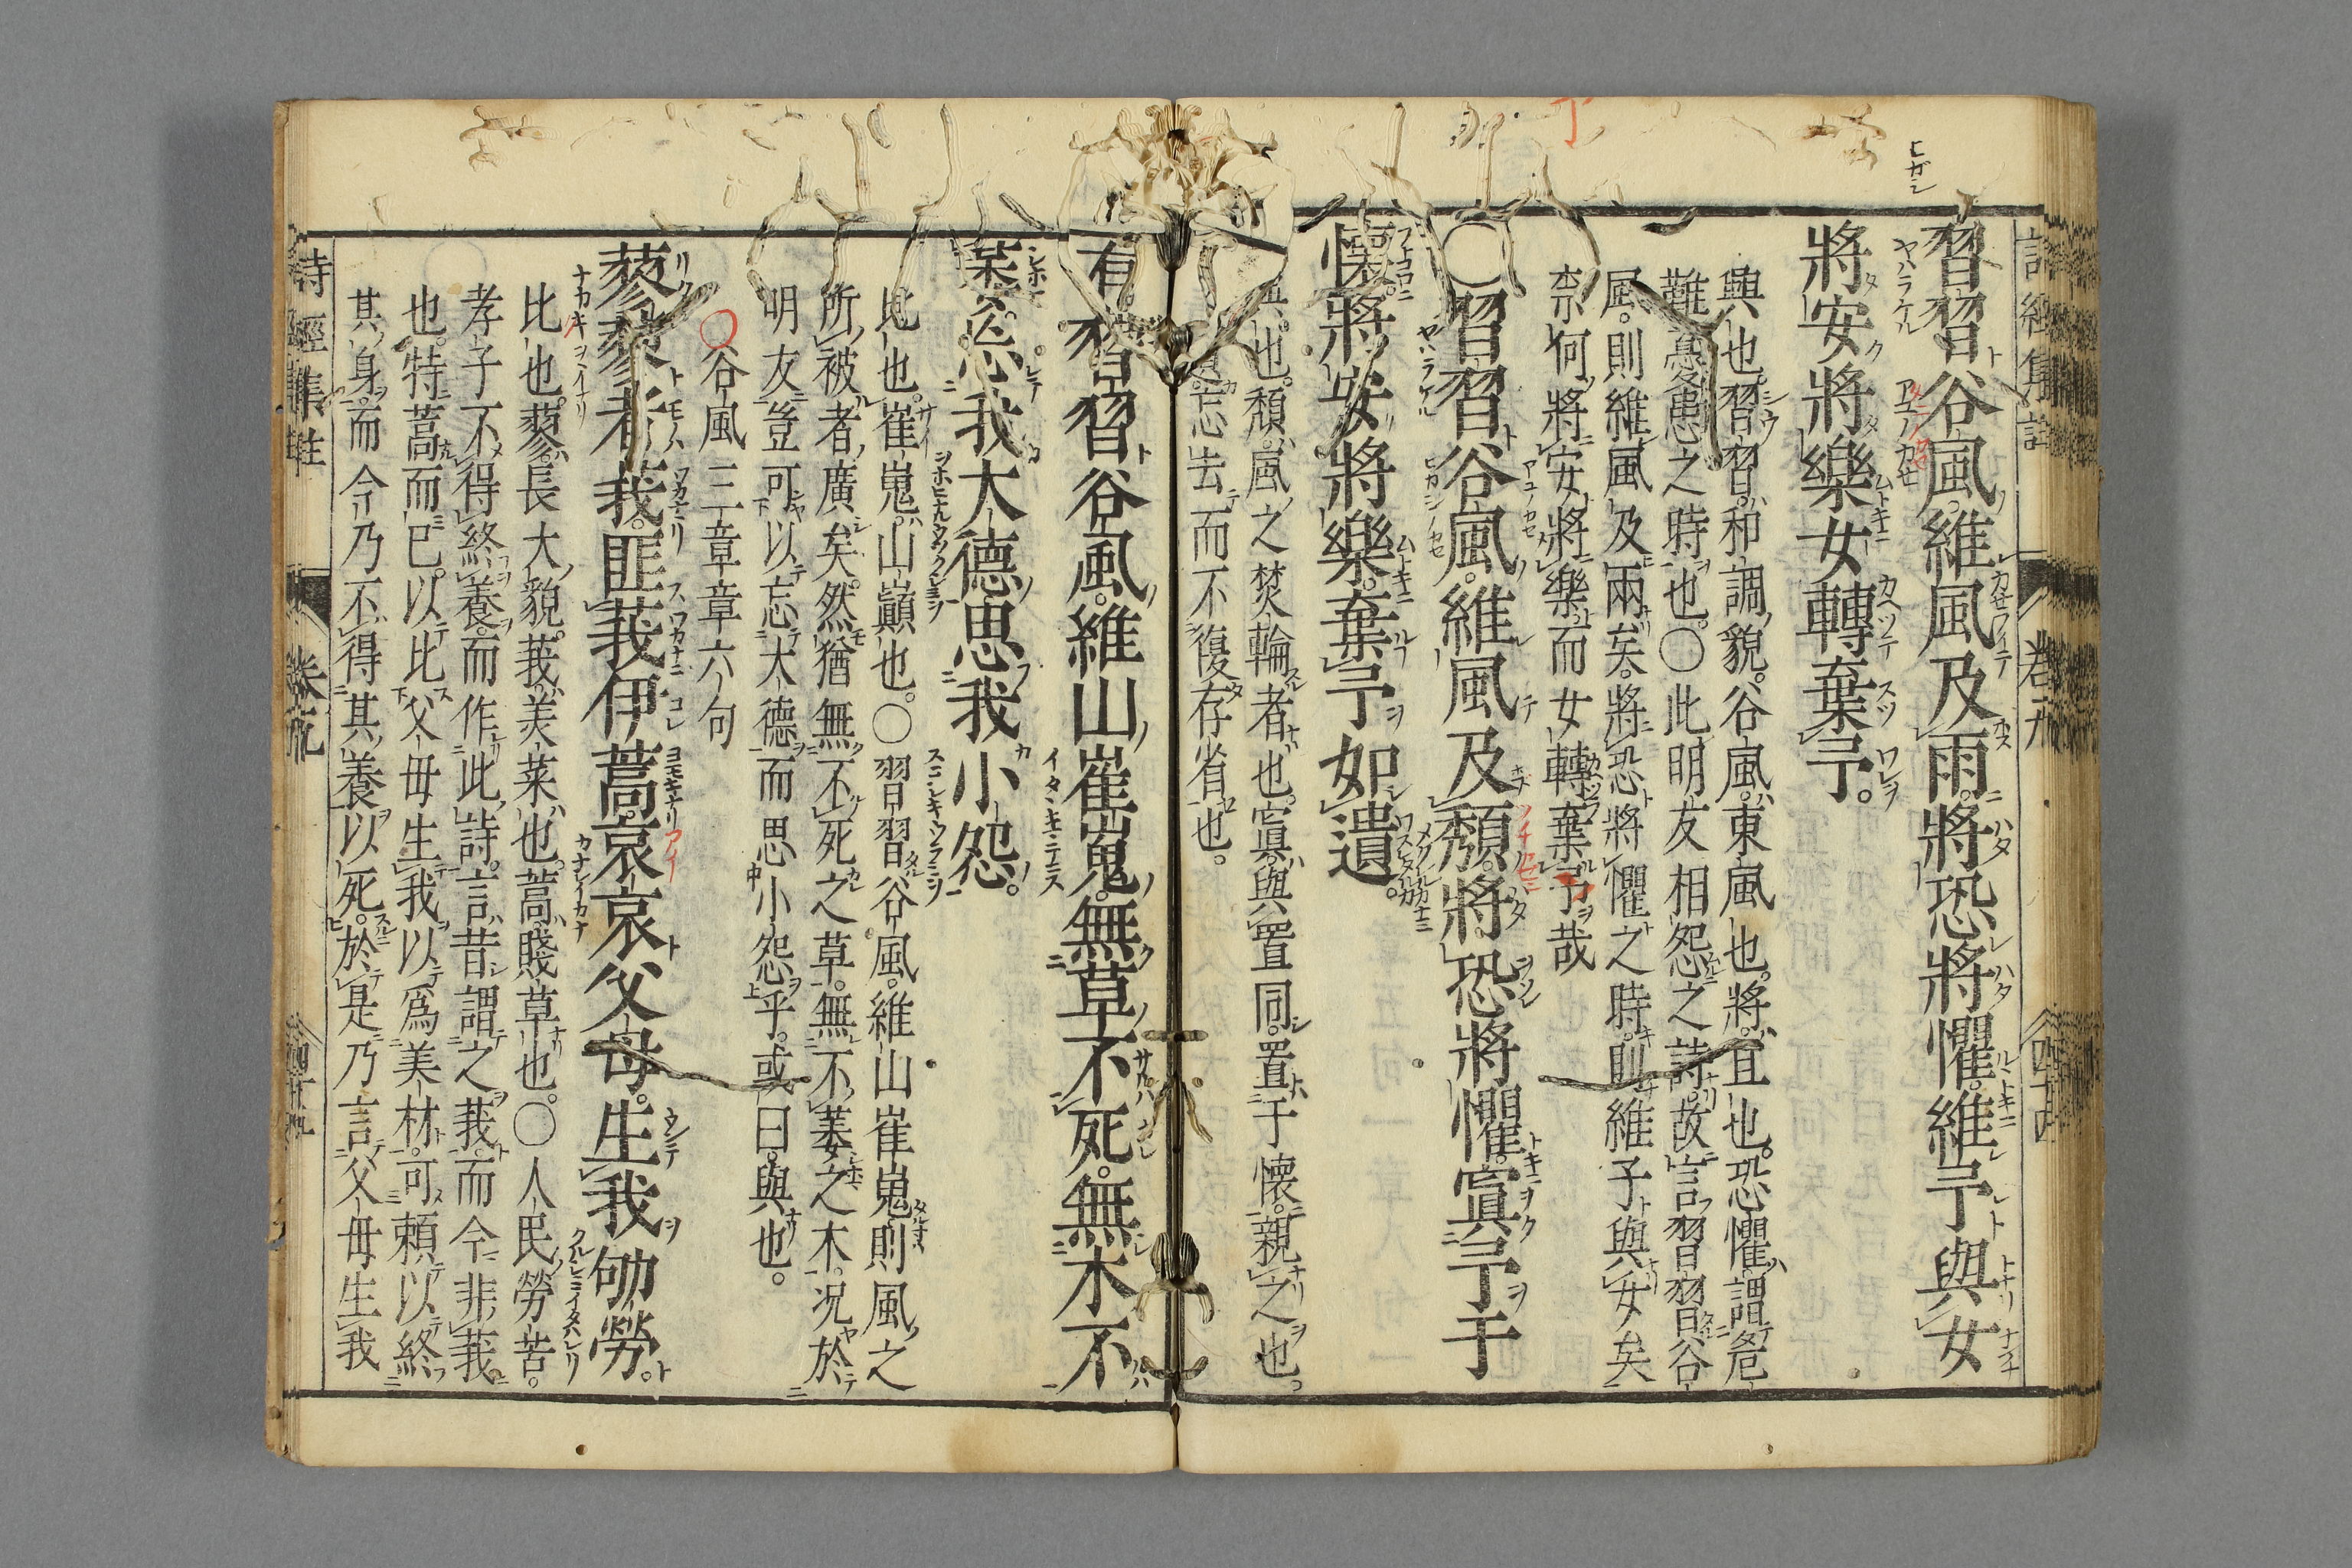 習習谷風。維風及雨。將恐將懼。維予與女
將安將樂女轉棄予。
興也。習習。和調貌。谷風。東風也。將。且也。恐懼。謂危
難憂患之時也。〇此朋友相怨之詩。故言習習谷
風。則維風及雨矣。將恐將懼之時。則維予與女矣
柰何將安將樂而女轉棄予哉
〇習習谷風。維風及頹。將恐將懼。寘予于
懷。將安將樂。棄予如遺。
興也。頹。風之焚輪者也。寘。與置同。置于懷。親之也。
忘去而不復存省也。
習習谷風。維山崔嵬。無草不死。無木不
忘我大德思我小怨。
比也。崔嵬。山巓也。〇習習谷風。維山崔嵬則風之
所被者廣矣。然猶無不死之草。無不萎之木。况於
朋友豈可以忘大德而思小怨乎。或曰。與也。
〇谷風三章章六句
蓼蓼者莪。匪莪伊蒿。哀哀父母。生我劬勞。
比也。蓼。長大貌。莪。美菜也。蒿。賤草也。〇人民勞苦。
孝子不得終養。而作此詩。言昔謂之莪。而今非莪。
也。特蒿而已。以比父母生我以爲美材。可賴以終
其身。而今乃不得其養以死。於是乃言父母生我
詩經集註